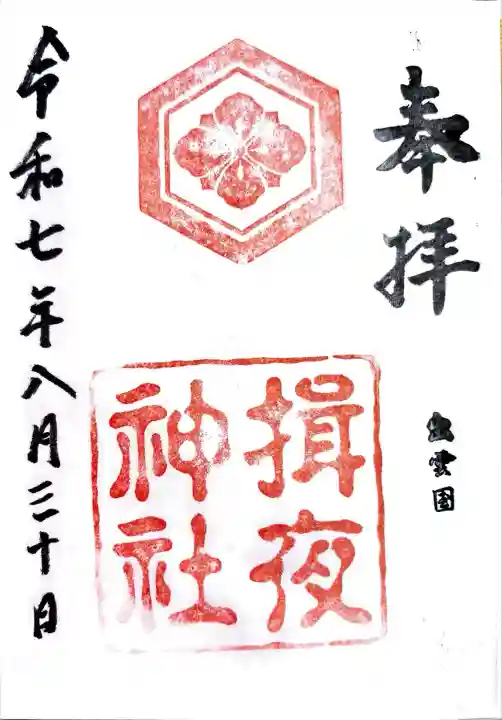 奉拝
出雲國
揖夜
神社
令和七年八月三十日